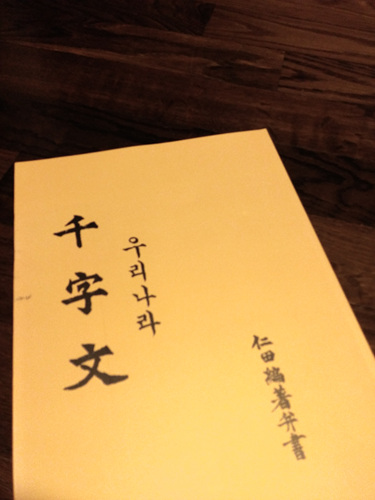 千字文
우리나라
仁田編著弁書